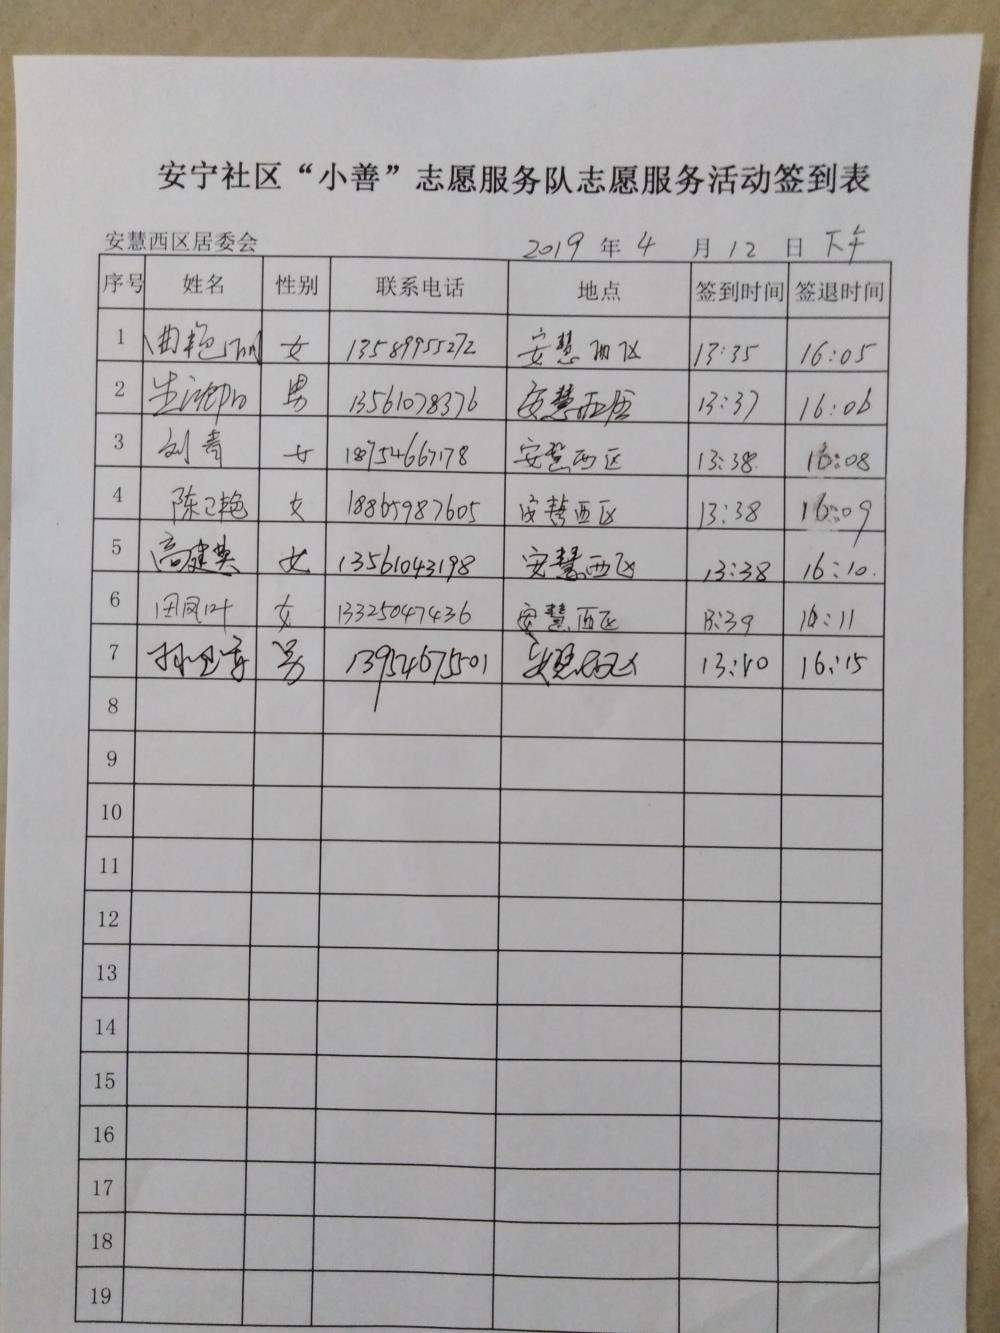 安宁社区“小善”志愿服务队志愿服务活动签到表
安慧西区居委会 2019 年 4 月 12 日 下午
序号 姓名 性别 联系电话 地点 签到时间 签退时间
1 曲艳丽 女 13589955272 安慧西区 13:35 16:05
2 男 13561078376 安慧西区 13:37 16:06
3 刘青 女 18754667178 安慧西区 13:38 16:08
4 陈卫艳 女 18865987605 安慧西区 13:38 16:09
5 高建英 女 13561043198 安慧西区 13:38 16:10
6 田凤叶 女 13325047436 安慧西区 13:39 16:11
7 男 13954675501 安慧西区 13:40 16:15
8
9
10
11
12
13
14
15
16
17
18
19